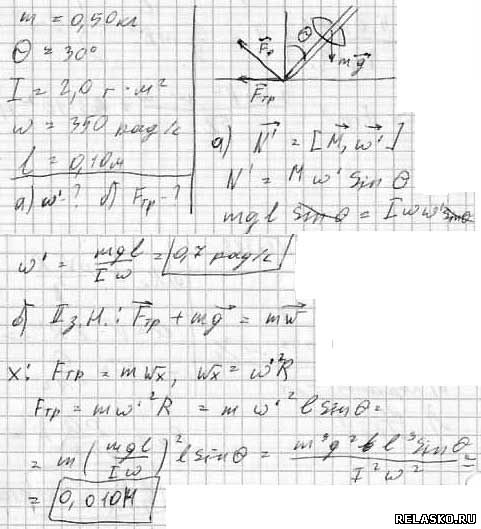 m = 0,50 кг
Θ = 30°
I = 2,0 г·м²
ω = 350 рад/с
l = 0,10 м
а) ω'-? б) Fтр-?
Θ
mg⃗
F⃗тр
а) N⃗' = [M⃗, ω⃗']
N' = M ω' sin Θ
mgl sin Θ = I ω ω' sin Θ
ω' = mgl / Iω = 0,7 рад/с
б) II з.Н.: F⃗тр + mg⃗ = mw⃗
x: Fтр = m wx, wx = ω'² R
Fтр = m ω'² R = m ω'² l sin Θ =
= m (mgl / Iω)² l sin Θ = m³ g² l³ sin Θ / I² ω² =
= 0,010 Н
RELASKO.RU